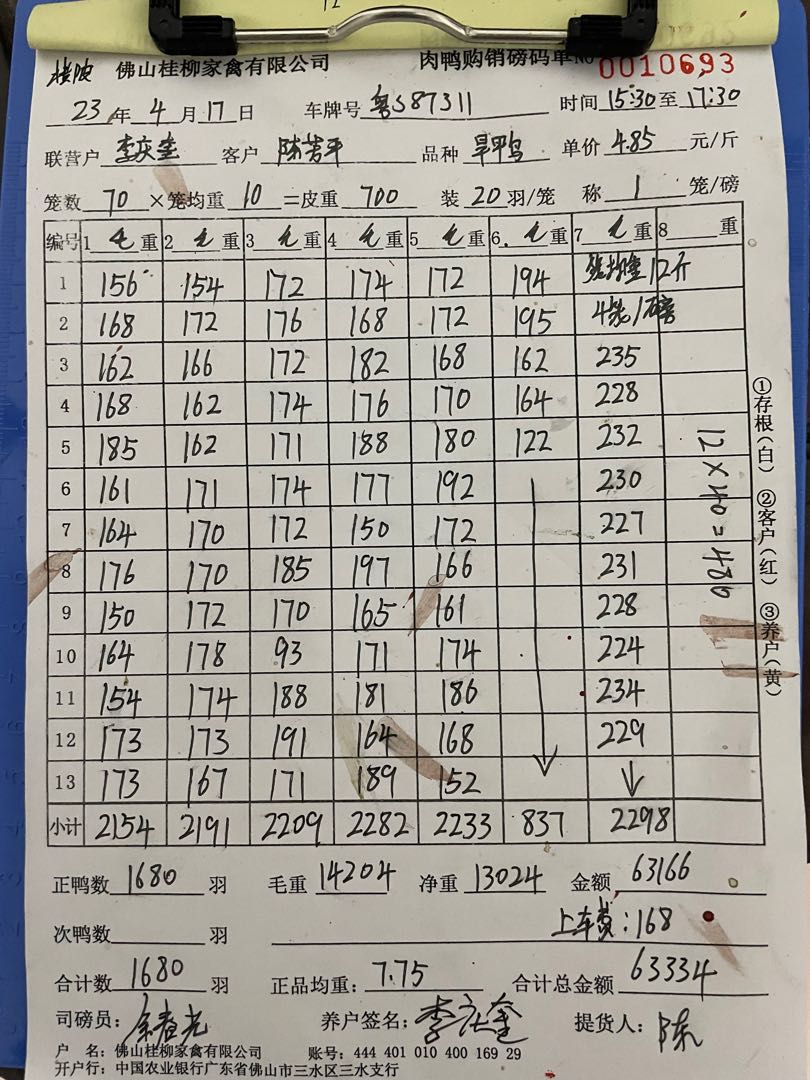 楼波 佛山桂柳家禽有限公司 肉鸭购销磅码单 No 0010693
23 年 4 月 17 日 车牌号 粤S87311 时间 15:30 至 17:30
联营户 李庆奎 客户 陈芳平 品种 旱鸭 单价 4.85 元/斤
笼数 70 ×笼均重 10 =皮重 700 装 20 羽/笼 称 1 笼/磅
编号 1 毛 重 2 毛 重 3 毛 重 4 毛 重 5 毛 重 6. 毛 重 7 毛 重 8 重
1 156 154 172 174 172 194 笼均重12斤
2 168 172 176 168 172 195 4笼/磅
3 162 166 172 182 168 162 235
4 168 162 174 176 170 164 228
5 185 162 171 188 180 122 232
6 161 171 174 177 192 230
7 164 170 172 150 172 227
8 176 170 185 197 166 231
9 150 172 170 165 161 228
10 164 178 93 171 174 224
11 154 174 188 181 186 234
12 173 173 191 164 168 229
13 173 167 171 189 152
小计 2154 2191 2209 2282 2233 837 2298
12×40=480
①存根(白) ②客户(红) ③养户(黄)
正鸭数 1680 羽 毛重 14204 净重 13024 金额 63166
次鸭数 羽 上车费:168
合计数 1680 羽 正品均重: 7.75 合计总金额 63334
司磅员: 余春光 养户签名: 李庆奎 提货人: 陈
户 名: 佛山桂柳家禽有限公司 账号: 444 401 010 400 169 29
开户行: 中国农业银行广东省佛山市三水区三水支行